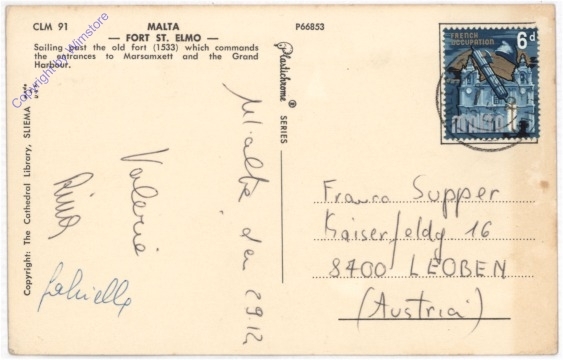 CLM 91
MALTA
P66853
— FORT ST. ELMO —
Sailing past the old fort (1533) which commands
the entrances to Marsamxett and the Grand
Harbour.
Copyright by Wimstore
Copyright: The Cathedral Library, SLIEMA
Plastichrome ® SERIES
FRENCH
OCCUPATION
6d
MALTA
Malta, den 29.12
Valerie
Gabriella
Franco Supper
Kaiserfeldg 16
8700 LEOBEN
(Austria)